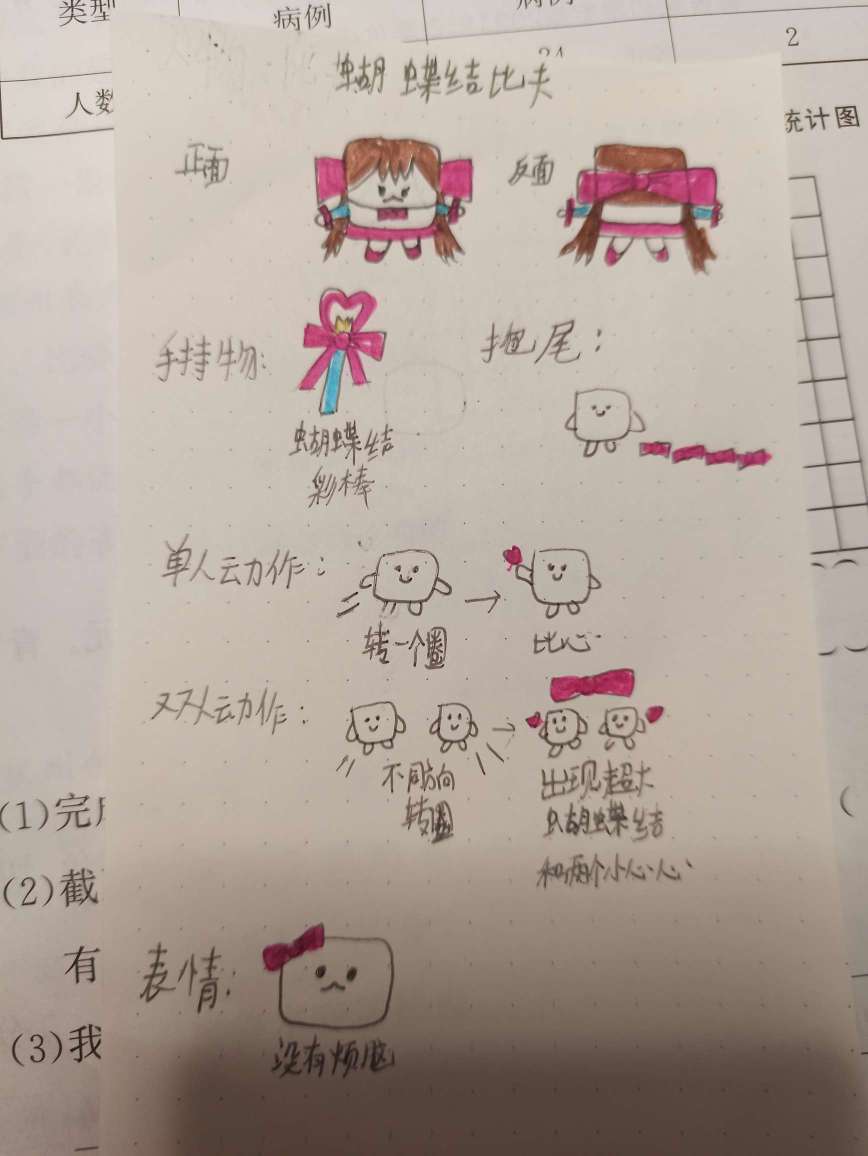 类型
病例
病例
2
人数
统计图
蝴蝶结比夫
正面
反面
手持物:
拖尾:
蝴蝶结
彩棒
单人动作:
转一个圈
比心
双人动作:
不同方向
转圈
出现超大
蝴蝶结
和两个小心心
(1)完
(2)截
有
(3)我
表情:
没有烦恼